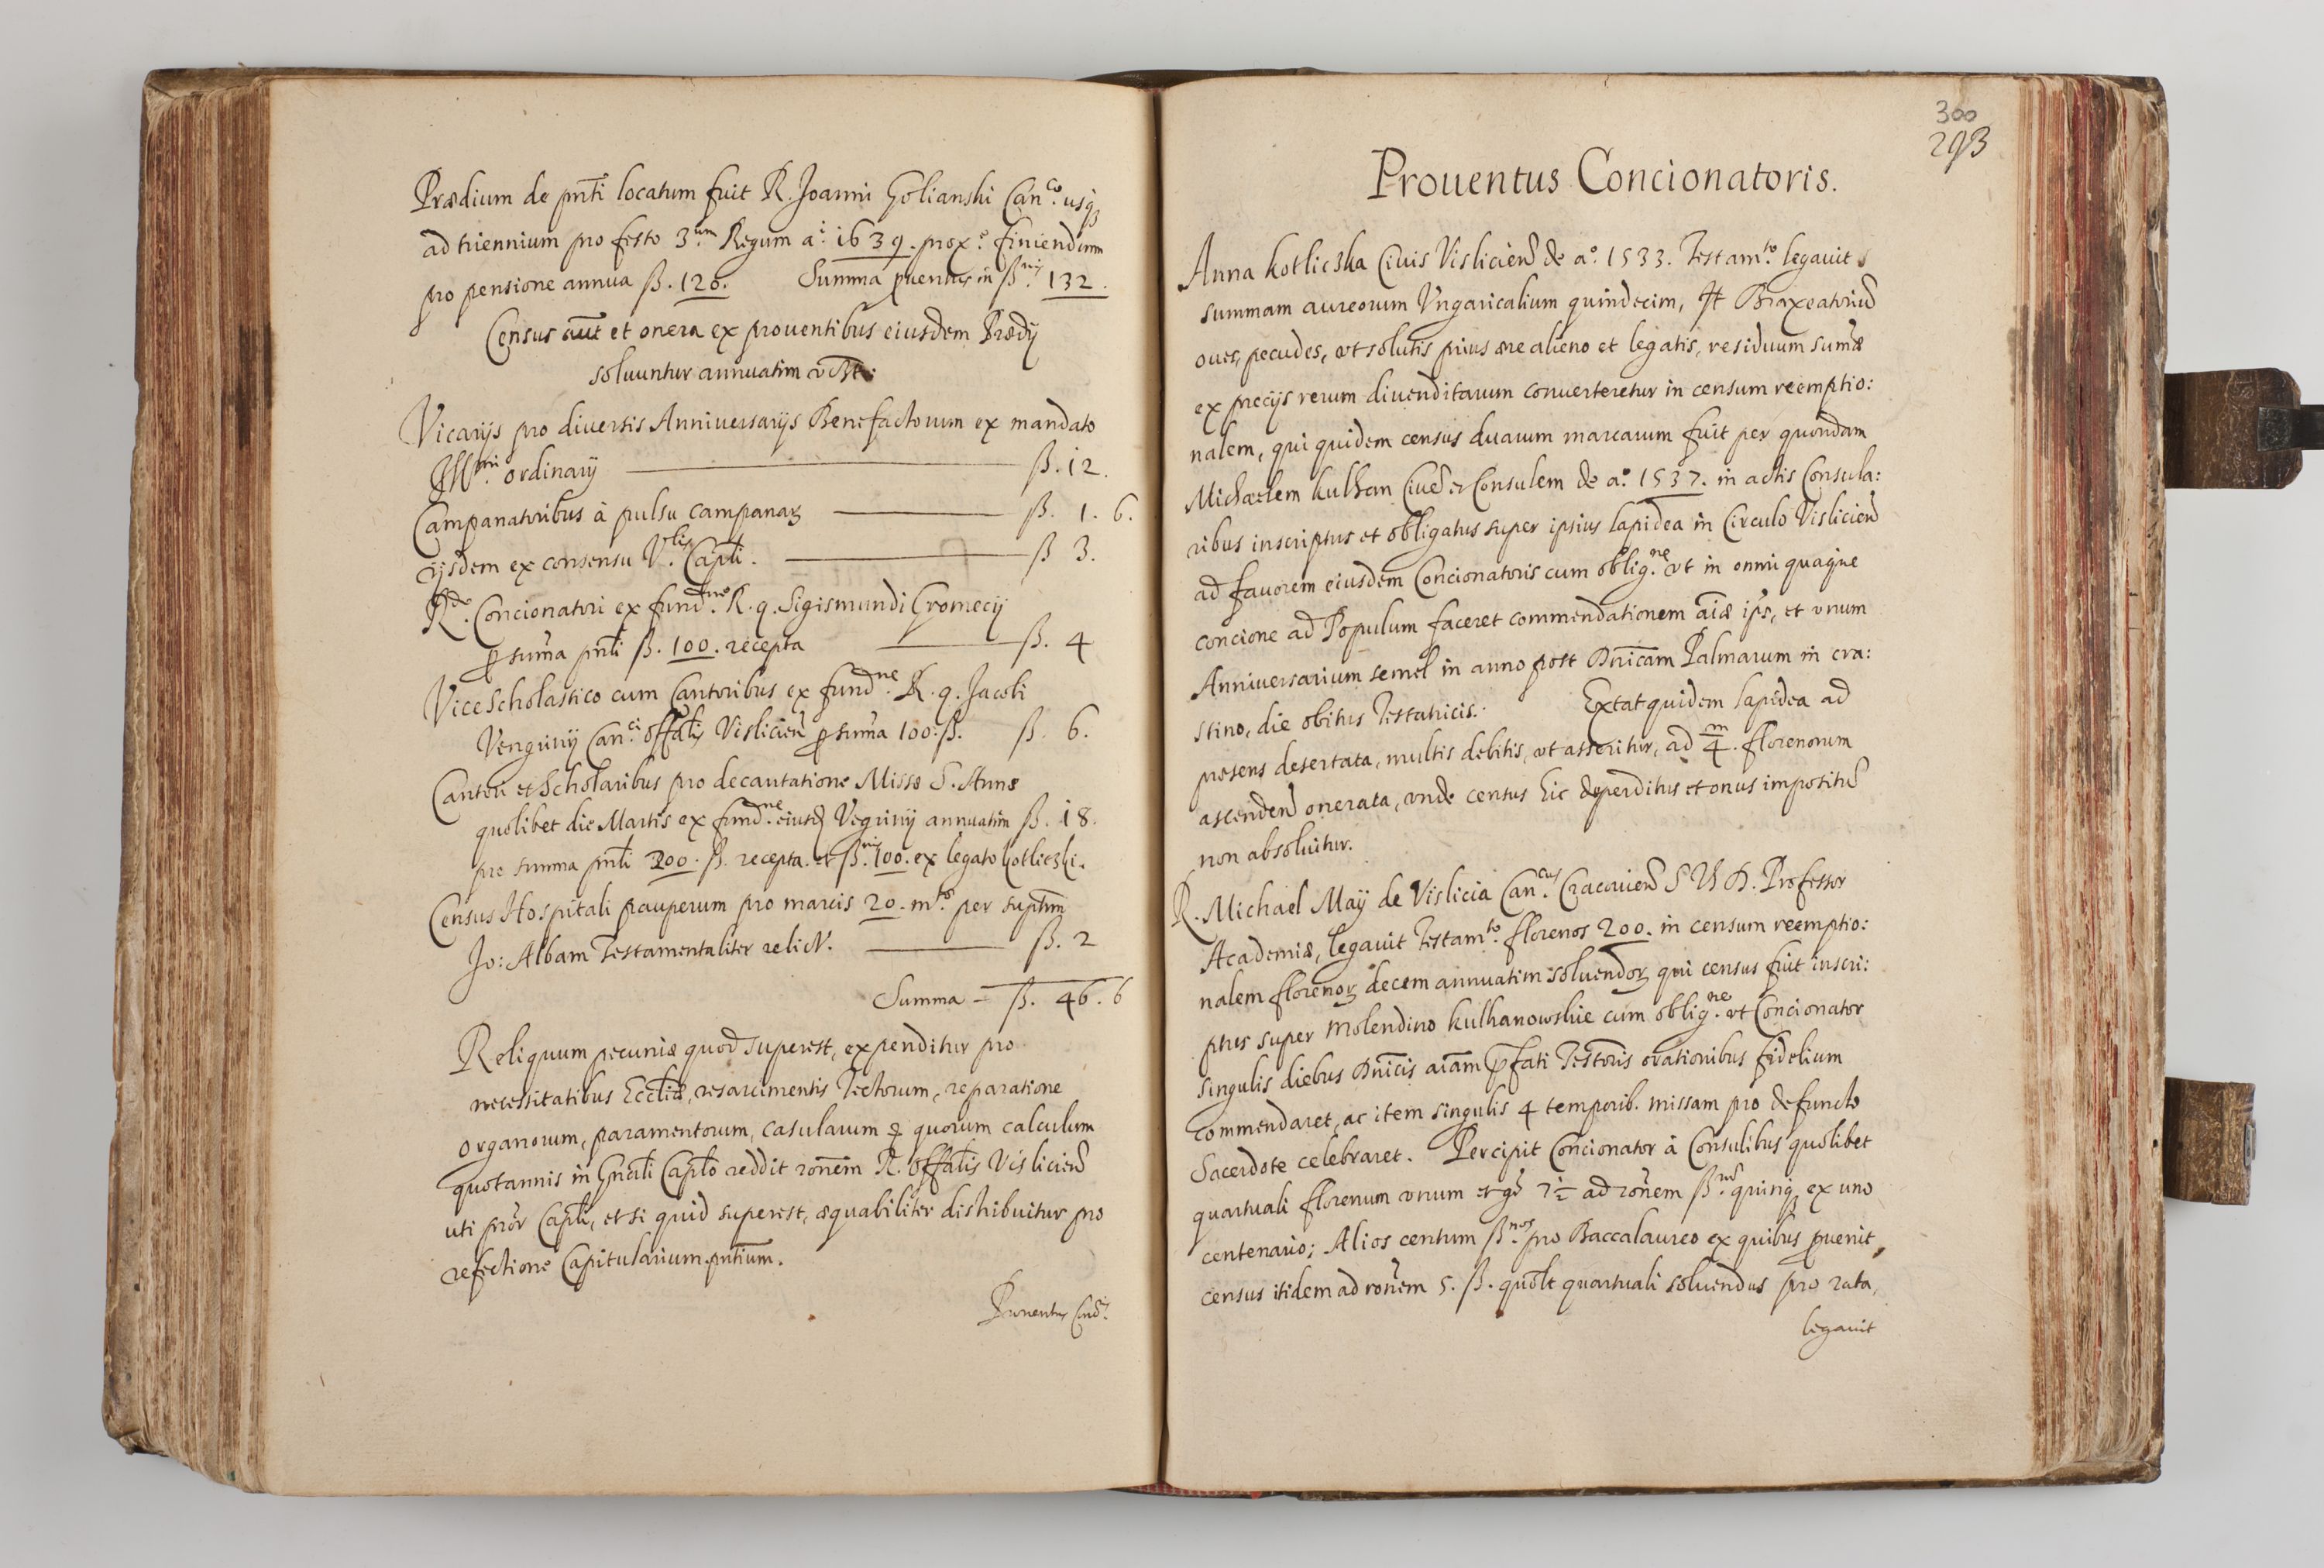 Prædium de pñti locatum fuit R. Joanni Golianski Can.co usq3
ad triennium pro festo 3.um Regum a.i 1639. prox.e finiendum
pro pensione annua ß. 126. Summa puentus in ß.nis 132.
Census aut et onera ex prouentibus eiusdem Prædij
soluuntur annuatim
Vicarijs pro diuersis Anniuersarijs Benefactorum ex mandato
Jll.mi ordinarij ß. 12.
Campanatoribus à pulsu campanar3 ß. 1. 6.
ijsdem ex consensu V.lis Capli. ß 3.
R.do Concionatori ex fund.ne R. q. Sigismundi Cromecij
p sum̃a pñti ß. 100. recepta ß. 4
Vicescholastico cum Cantoribus ex fund.ne R. q. Jacobi
Vengriny Can.ci offalis Visliciẽn p sum̃a 100. ß. ß. 6.
Cantori et Scholaribus pro decantatione Missæ S. Annæ
quolibet die Martis ex fund.ne eiusd Vegriny annuatim ß. 18.
pro summa pñti 200. ß. recepta et ß.nis 100. ex legato kotliczki.
Census Hospitali pauperum pro marcis 20. m.to per
Jo: Albam Testamentaliter relict. ß. 2
Summa - ß. 46. 6
Reliquum pecuniæ quod superest, expenditur pro
necessitatibus Eccliæ, resarcimentis Tectorum, reparatione
organorum, paramentorum, casularum quorum calculum
quotannis in Gñali Caplo reddit roñem R. offalis Visliciẽn
uti pror Capli, et si quid superest, æquabiliter distribuitur pro
refectione Capitularium pñtium.
Prouentus Cond:
300
293
Prouentus Concionatoris.
Anna kotliczka Ciuis Visliciẽn de a.o 1533. Testam.to legauit
summam aureorum Vngaricalium quindecim, It Braxeatoriũ
oues, pecudes, vt solutis prius ære alieno et legatis, residuum sum̃æ
ex precijs rerum diuenditarum conuerteretur in censum reemptio:
nalem, qui quidem census duarum marcarum fuit per quondam
Michaelem kulhan Ciuẽ et Consulem de a.o 1537. in actis Consula:
ribus inscriptus et obligatus super ipsius lapidea in Circulo Visliciẽn
ad fauorem eiusdem Concionatoris cum oblig.ne vt in omni quaque
concione ad Populum faceret commendationem aĩæ ips, et vnum
Anniuersarium semel in anno post Dnĩcam Palmarum in cra:
stino, die obitus Testatricis. Extat quidem lapidea ad
præsens desertata, multis debitis, vt asseritur, ad 4.m florenorum
ascendeñ onerata, vnde census hic deperditus et onus impositũ
non absoluitur.
R. Michael Maÿ de Vislicia Can.cus Cracouieñ S V D. Professor
Academiæ, legauit Testam.to florenos 200. in censum reemptio:
nalem florenor3 decem annuatim soluendor3 qui census fuit inscri:
ptus super Molendino kulhanowskie cum oblig.ne vt Concionator
singulis diebus Dnĩcis aĩam pfati Testoris orationibus fidelium
commendaret, ac item singulis 4 temporib. missam pro defuncto
Sacerdote celebraret. Percipit Concionator à Consulibus quolibet
quartuali florenum vnum et g 7½ ad roñem ß.nũ quinq3 ex uno
centenario; Alios centum ß.nos pro Baccalaureo ex quibus puenit
census itidem ad roñem 5. ß. quolt quartuali soluendus pro rata,
legauit